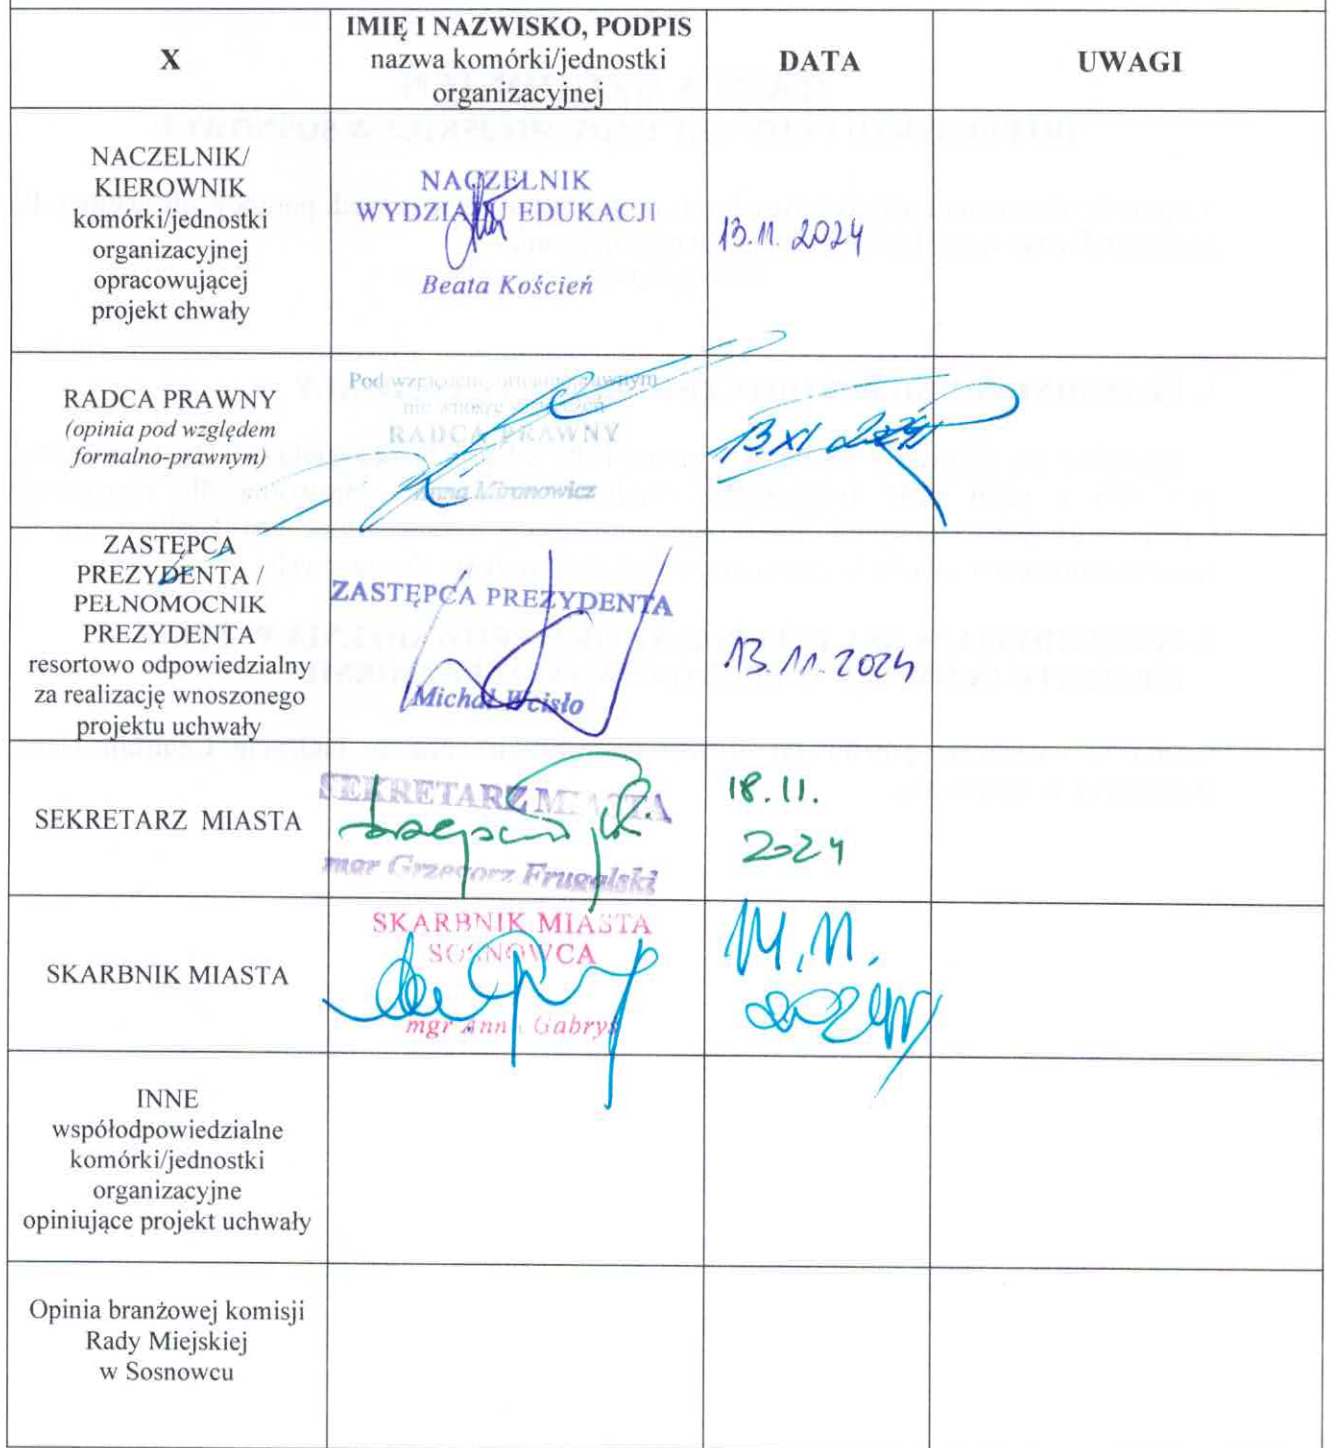 X
IMIĘ I NAZWISKO, PODPIS
nazwa komórki/jednostki
organizacyjnej
DATA
UWAGI
NACZELNIK/
KIEROWNIK
komórki/jednostki
organizacyjnej
opracowującej
projekt chwały
NACZELNIK
WYDZIAŁU EDUKACJI
Beata Koścień
13.11.2024
RADCA PRAWNY
(opinia pod względem
formalno-prawnym)
Pod względem prawnym
nie wnoszę
RADCA PRAWNY
Anna Mironowicz
13 XI
ZASTĘPCA
PREZYDENTA /
PEŁNOMOCNIK
PREZYDENTA
resortowo odpowiedzialny
za realizację wnoszonego
projektu uchwały
ZASTĘPCA PREZYDENTA
Michał Wcisło
13.11.2024
SEKRETARZ MIASTA
SEKRETARZ MIASTA
mgr Grzegorz Frugalski
18.11.
2024
SKARBNIK MIASTA
SKARBNIK MIASTA
SOSNOWCA
mgr Anna Gabryś
INNE
współodpowiedzialne
komórki/jednostki
organizacyjne
opiniujące projekt uchwały
Opinia branżowej komisji
Rady Miejskiej
w Sosnowcu